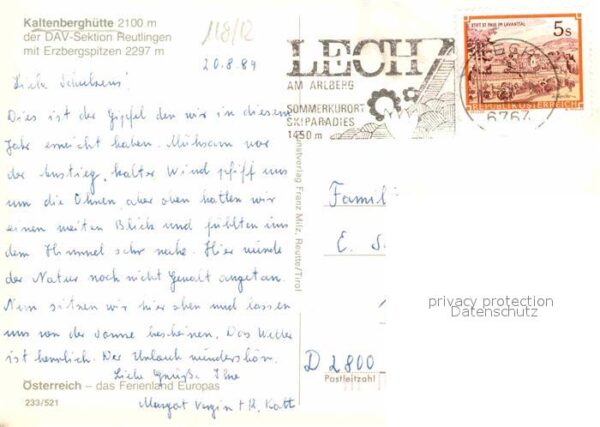 Kaltenberghütte 2100 m
der DAV-Sektion Reutlingen
mit Erzbergspitzen 2297 m
118/12
20.8.89
Liebe Schulzens!
Dies ist der Gipfel den wir in diesem
Jahr erreicht haben. Mühsam war
der Anstieg, kalter Wind pfiff uns
um die Ohren, aber oben hatten wir
einen weiten Blick und fühlten uns
dem Himmel sehr nahe. Hier wurde
der Natur noch nicht Gewalt angetan.
Nun sitzen wir hier oben und lassen
uns von der Sonne bescheinen. Das Wetter
ist herrlich. Der Urlaub wunderschön.
Liebe Grüße Ihre
Margot
Österreich – das Ferienland Europas
233/521
Kunstverlag Franz Milz, Reutte/Tirol
LECH
AM ARLBERG
SOMMERKURORT
SKIPARADIES
1450 m
STIFT ST. PAUL IM LAVANTTAL
5s
REPUBLIK ÖSTERREICH
6764
Famil
E. S.
privacy protection
Datenschutz
D 2800
Postleitzahl